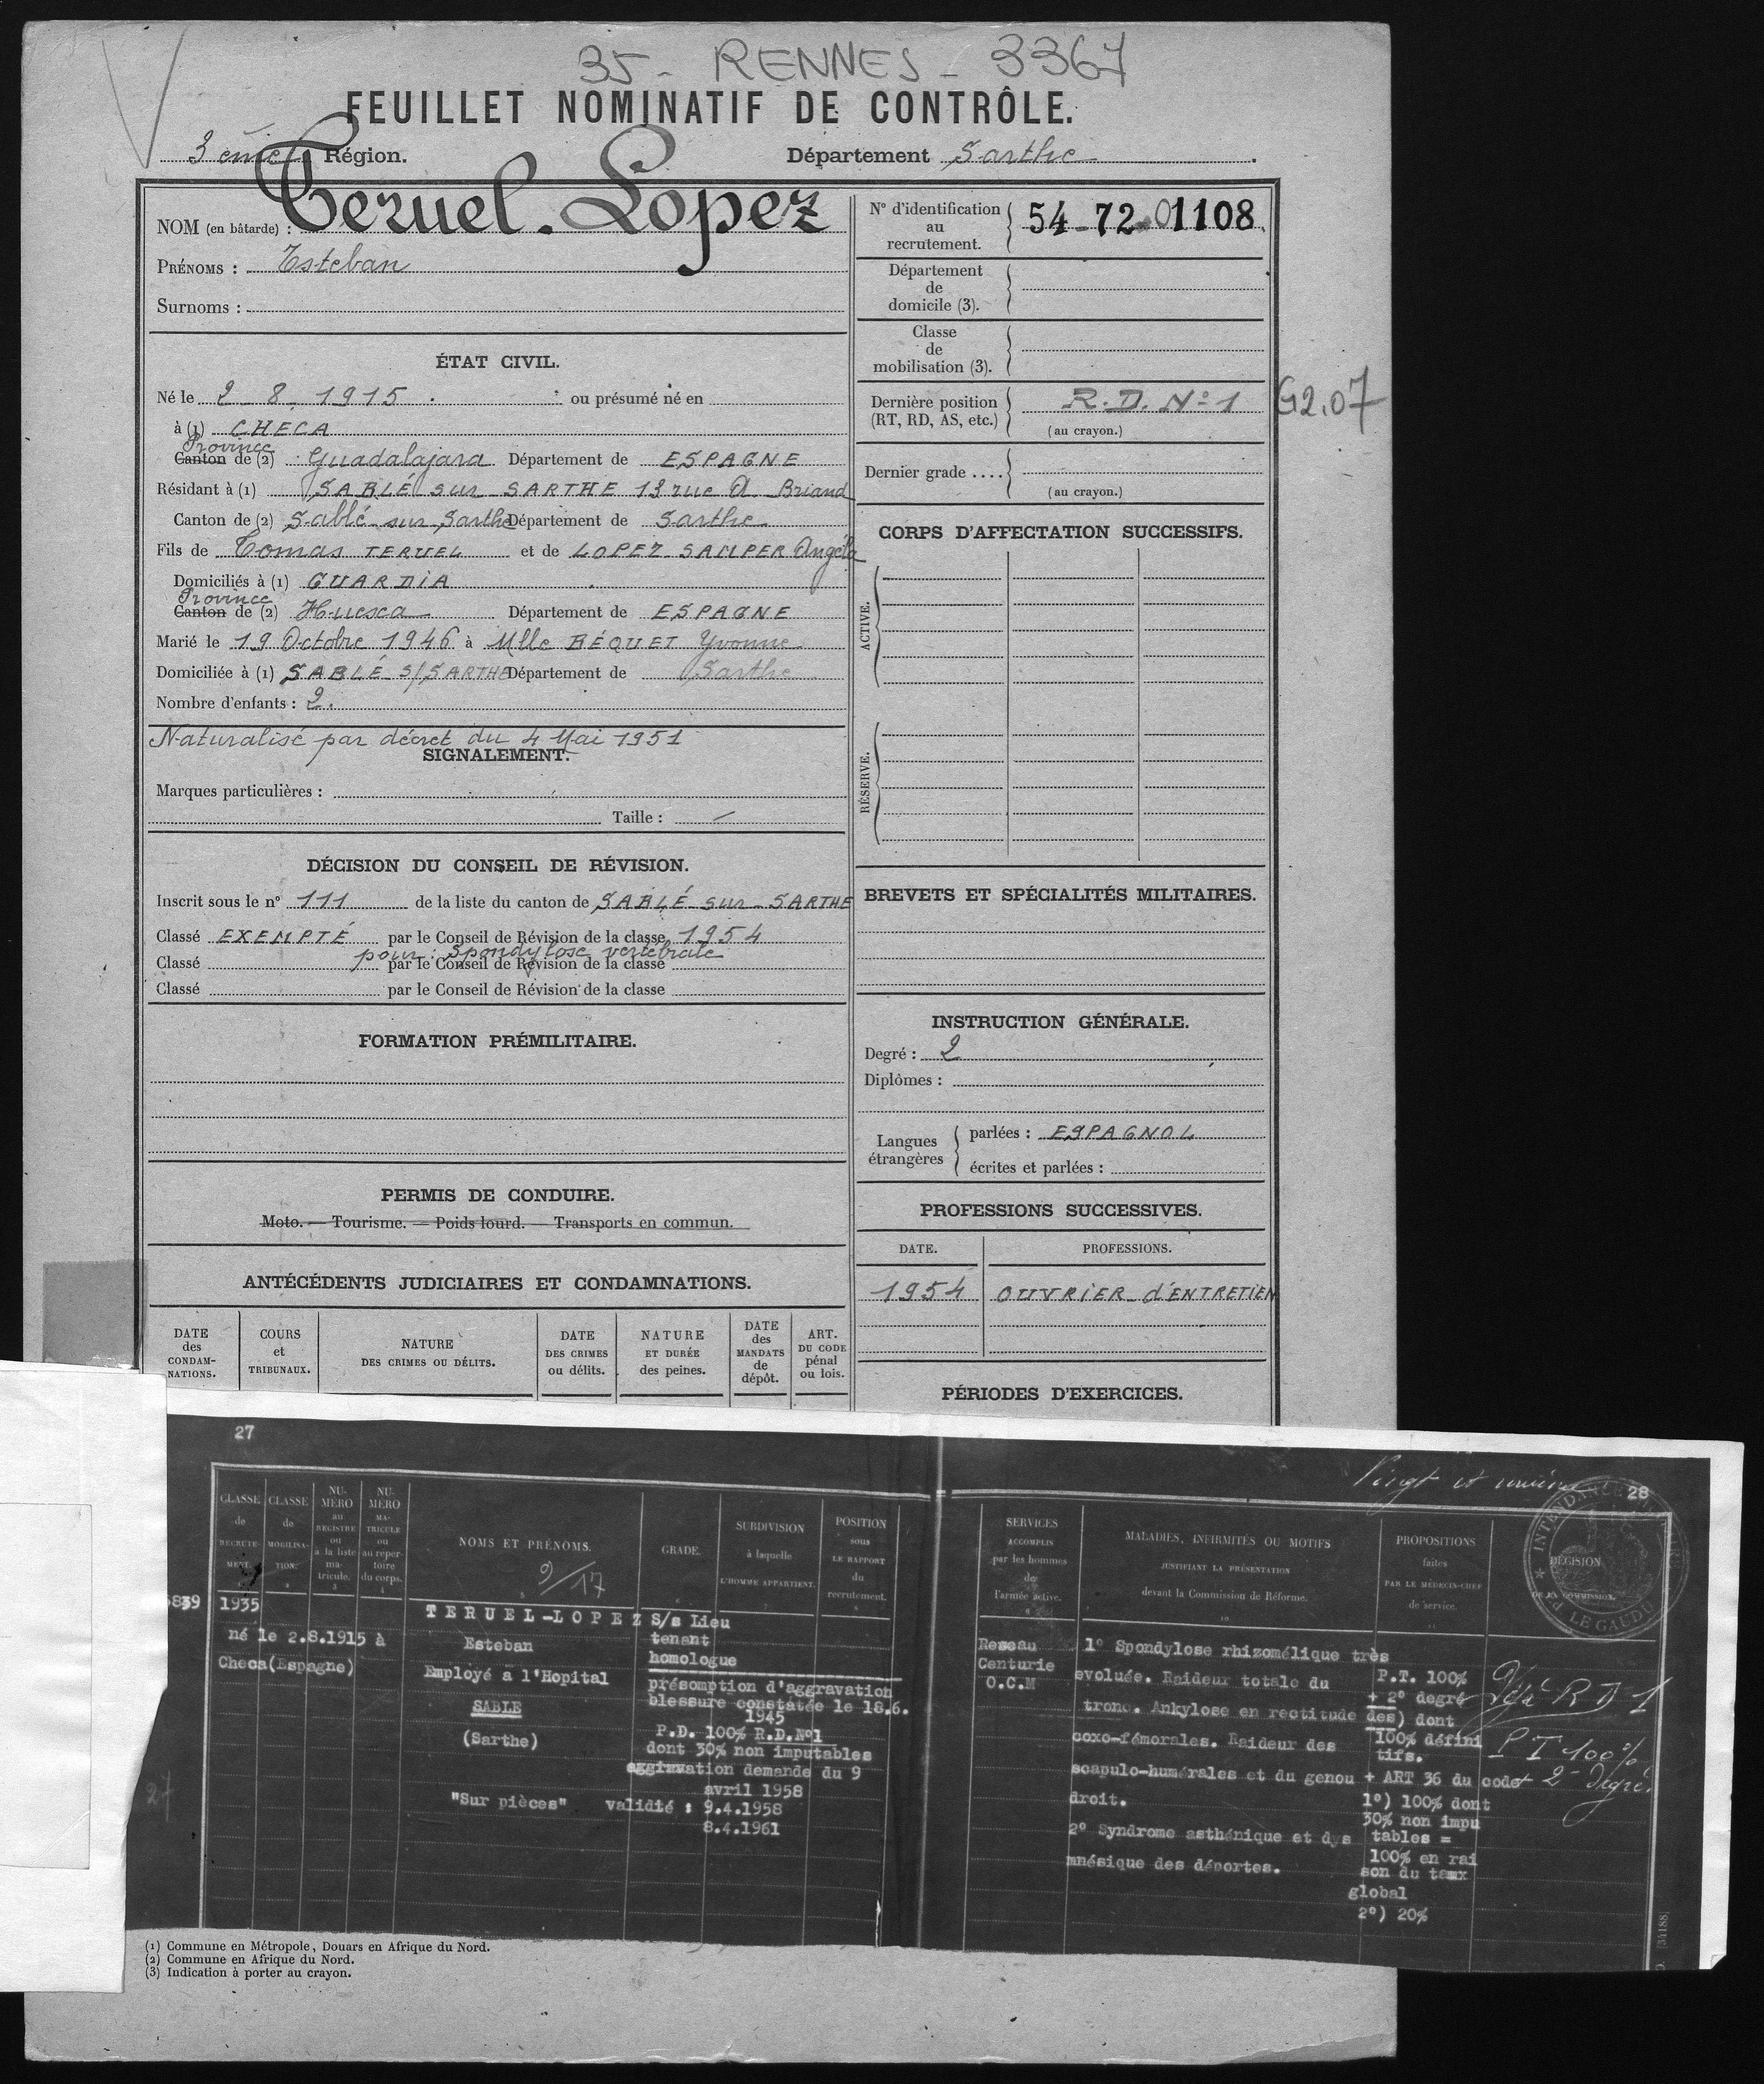 35 - RENNES - 3367
FEUILLET NOMINATIF DE CONTRÔLE.
3 eme Région.
Département Sarthe.
NOM (en bâtarde) : Teruel-Lopez
PRÉNOMS : Esteban
Surnoms :
ÉTAT CIVIL.
Né le 2 - 8 - 1915. ou présumé né en
à (1) CHECA
Province
Canton de (2) Guadalajara Département de ESPAGNE
Résidant à (1) SABLÉ sur SARTHE 13 rue A. Briand
Canton de (2) Sablé sur Sarthe Département de Sarthe
Fils de Tomas TERUEL et de LOPEZ SAMPER Angéla
Domiciliés à (1) GUARDIA
Province
Canton de (2) Huesca Département de ESPAGNE
Marié le 19 Octobre 1946 à Mlle BÉQUET Yvonne
Domiciliée à (1) SABLÉ S/SARTHE Département de Sarthe
Nombre d'enfants : 2.
Naturalisé par décret du 4 Mai 1951
SIGNALEMENT.
Marques particulières :
Taille :
DÉCISION DU CONSEIL DE RÉVISION.
Inscrit sous le n° 111 de la liste du canton de SABLÉ sur SARTHE
Classé EXEMPTÉ par le Conseil de Révision de la classe 1954
pour : Spondylose vertébrale
Classé par le Conseil de Révision de la classe
Classé par le Conseil de Révision de la classe
FORMATION PRÉMILITAIRE.
PERMIS DE CONDUIRE.
Moto. — Tourisme. — Poids lourd. — Transports en commun.
ANTÉCÉDENTS JUDICIAIRES ET CONDAMNATIONS.
DATE des CONDAM-NATIONS.
COURS et TRIBUNAUX.
NATURE DES CRIMES OU DÉLITS.
DATE DES CRIMES ou délits.
NATURE ET DURÉE des peines.
DATE des MANDATS de dépôt.
ART. DU CODE pénal ou lois.
N° d'identification au recrutement. 54-72-01108
Département de domicile (3).
Classe de mobilisation (3).
Dernière position (RT, RD, AS, etc.) R.D. N° 1
(au crayon.)
G2.07
Dernier grade ....
(au crayon.)
CORPS D'AFFECTATION SUCCESSIFS.
ACTIVE.
RÉSERVE.
BREVETS ET SPÉCIALITÉS MILITAIRES.
INSTRUCTION GÉNÉRALE.
Degré : 2
Diplômes :
Langues étrangères
parlées : ESPAGNOL
écrites et parlées :
PROFESSIONS SUCCESSIVES.
DATE. PROFESSIONS.
1954 OUVRIER d'ENTRETIEN
PÉRIODES D'EXERCICES.
27
CLASSE de RECRUTE-MENT.
CLASSE de MOBILISA-TION.
NU-MÉRO au REGISTRE ou à la liste ma-tricule.
NU-MÉRO MA-TRICULE ou au réper-toire du corps.
NOMS ET PRÉNOMS.
9/17
GRADE.
SUBDIVISION à laquelle L'HOMME APPARTIENT.
POSITION sous LE RAPPORT du recrutement.
839 1935
né le 2.8.1915 à
Checa(Espagne)
TERUEL-LOPEZ
Esteban
Employé a l'Hopital
SABLE
(Sarthe)
"Sur pièces"
S/s Lieu
tenant
homologue
présomption d'aggravation
blessure constatée le 18.6.
1945
P.D. 100% R.D.N°1
dont 30% non imputables
aggravation demande du 9
avril 1958
validié : 9.4.1958
8.4.1961
27
Vingt et
28
SERVICES ACCOMPLIS par les hommes de l'armée active.
MALADIES, INFIRMITÉS OU MOTIFS JUSTIFIANT LA PRÉSENTATION devant la Commission de Réforme.
PROPOSITIONS faites PAR LE MÉDECIN-CHEF de service.
DÉCISION DE LA COMMISSION.
INTENDANCE
LE GAUDU
Reseau
Centurie
O.C.M
1° Spondylose rhizomélique très
evoluée. Raideur totale du
tronc. Ankylose en rectitude des
coxo-fémorales. Raideur des
scapulo-humérales et du genou
droit.
2° Syndrome asthénique et dys
mnésique des déportes.
P.T. 100%
+ 2° degré
) dont
100% défini
tifs.
+ ART 36 du code
1°) 100% dont
30% non impu
tables =
100% en rai
son du taux
global
2°) 20%
R D 1
P T 100%
+ 2e degré.
(1) Commune en Métropole, Douars en Afrique du Nord.
(2) Commune en Afrique du Nord.
(3) Indication à porter au crayon.